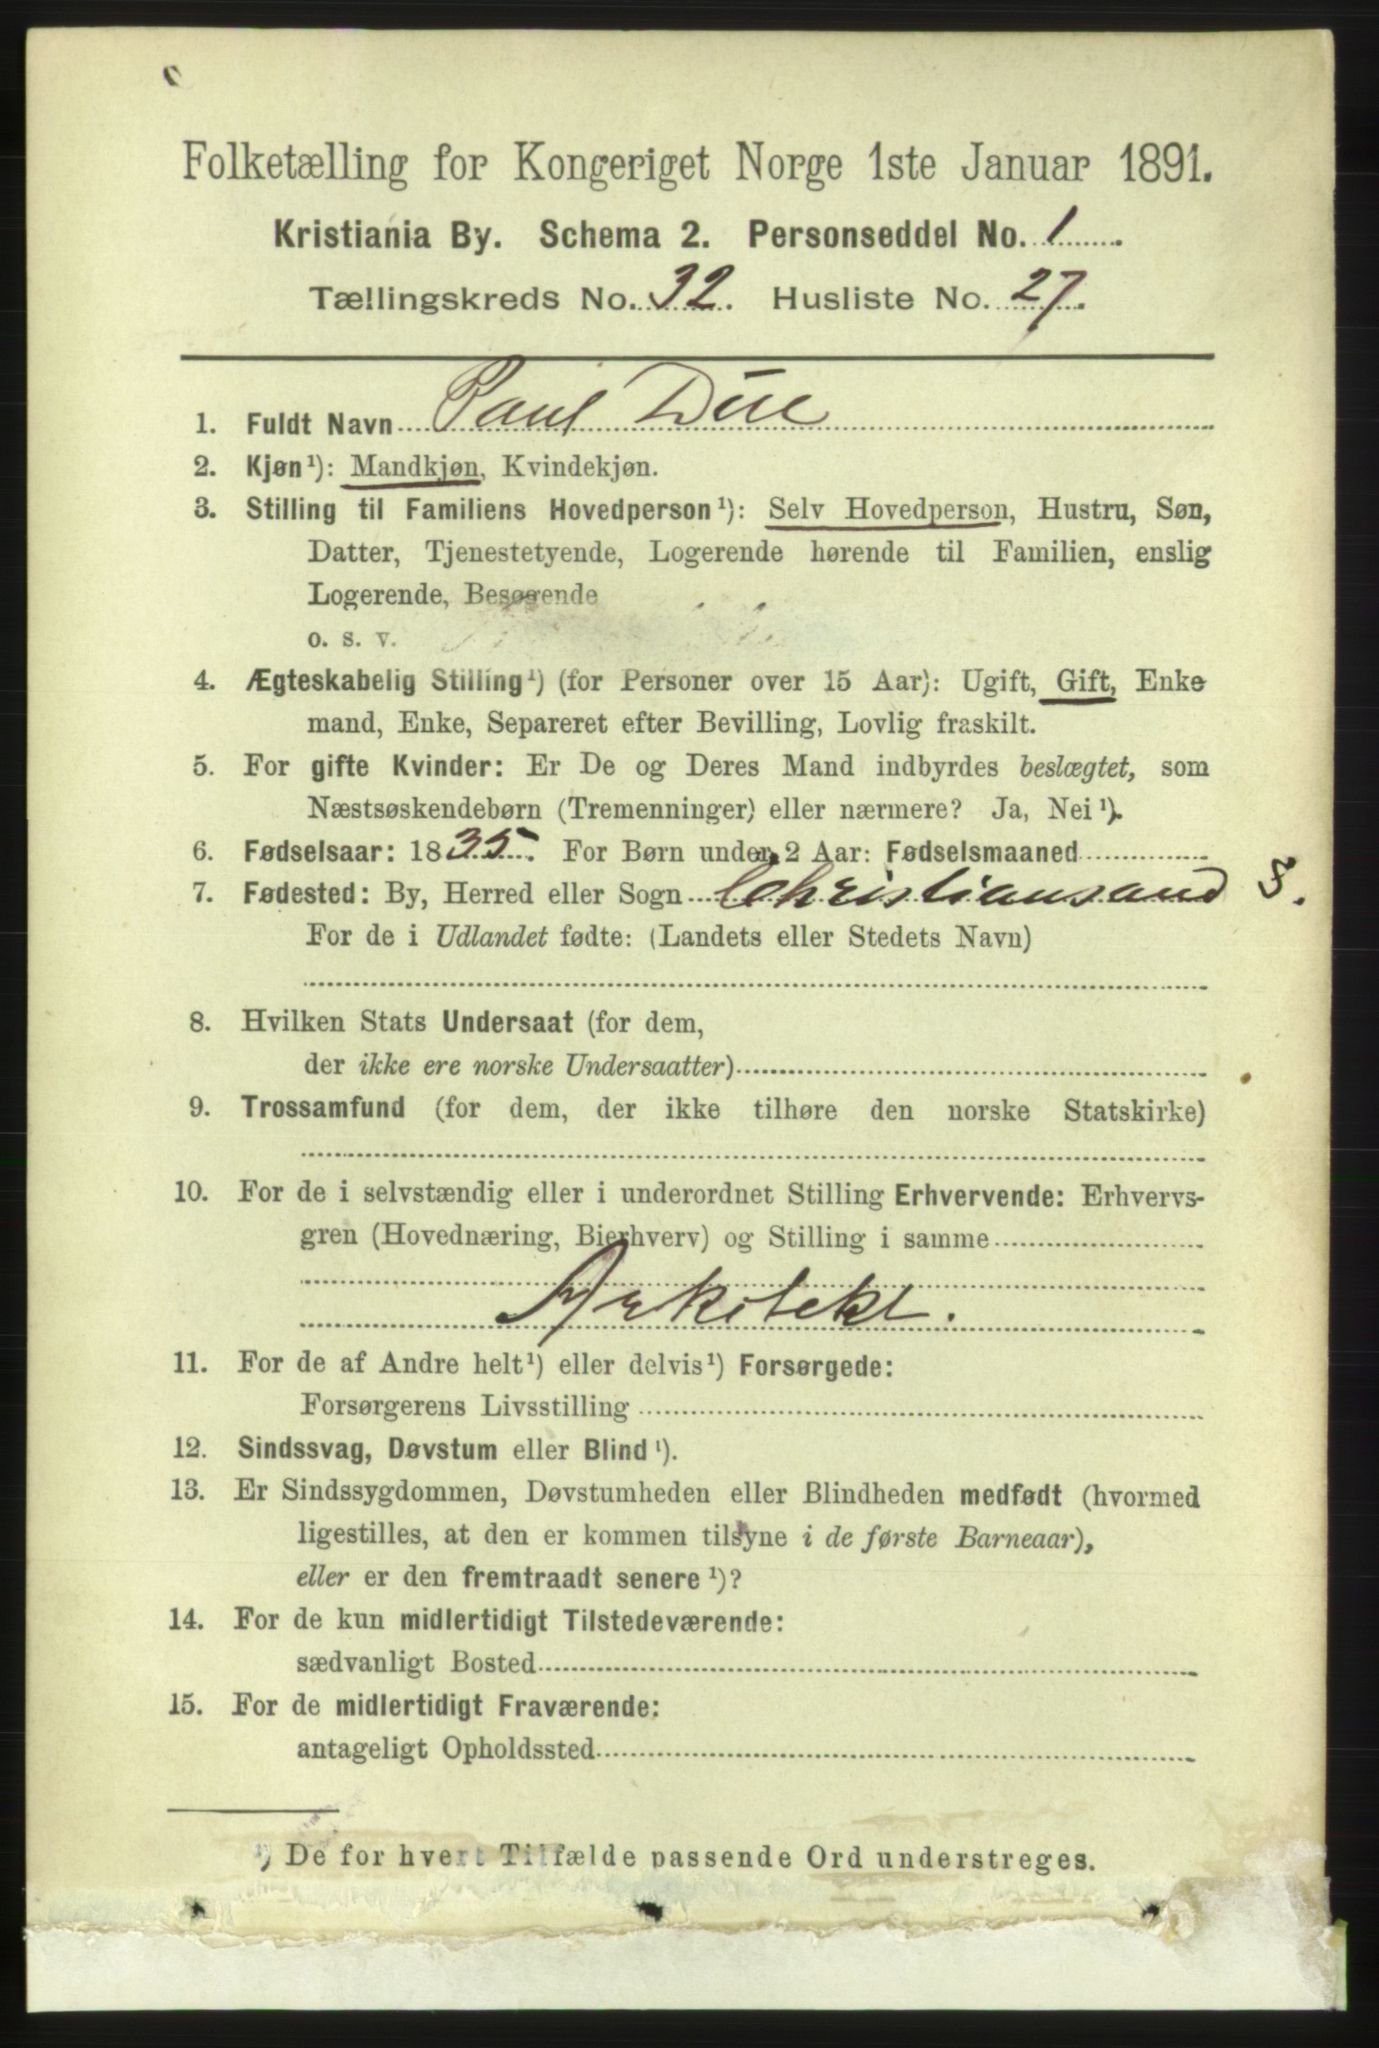 Folketælling for Kongeriget Norge 1ste Januar 1891.
Kristiania By. Schema 2. Personseddel No. 1
Tællingskreds No. 32. Husliste No. 27.
1. Fuldt Navn Paul Düe
2. Kjøn¹): Mandkjøn, Kvindekjøn.
3. Stilling til Familiens Hovedperson¹): Selv Hovedperson, Hustru, Søn,
Datter, Tjenestetyende, Logerende hørende til Familien, enslig
Logerende, Besøgende
o. s. v.
4. Ægteskabelig Stilling¹) (for Personer over 15 Aar): Ugift, Gift, Enke
mand, Enke, Separeret efter Bevilling, Lovlig fraskilt.
5. For gifte Kvinder: Er De og Deres Mand indbyrdes beslægtet, som
Næstsøskendebørn (Tremenninger) eller nærmere? Ja, Nei¹).
6. Fødselsaar: 1835. For Børn under 2 Aar: Fødselsmaaned
7. Fødested: By, Herred eller Sogn Christiansand S.
For de i Udlandet fødte: (Landets eller Stedets Navn)
8. Hvilken Stats Undersaat (for dem,
der ikke ere norske Undersaatter)
9. Trossamfund (for dem, der ikke tilhøre den norske Statskirke)
10. For de i selvstændig eller i underordnet Stilling Erhvervende: Erhvervs-
gren (Hovednæring, Bierhverv) og Stilling i samme
Arkitekt.
11. For de af Andre helt¹) eller delvis¹) Forsørgede:
Forsørgerens Livsstilling
12. Sindssvag, Døvstum eller Blind¹).
13. Er Sindssygdommen, Døvstumheden eller Blindheden medfødt (hvormed
ligestilles, at den er kommen tilsyne i de første Barneaar),
eller er den fremtraadt senere¹)?
14. For de kun midlertidigt Tilstedeværende:
sædvanligt Bosted
15. For de midlertidigt Fraværende:
antageligt Opholdssted
¹) De for hvert Tilfælde passende Ord understreges.